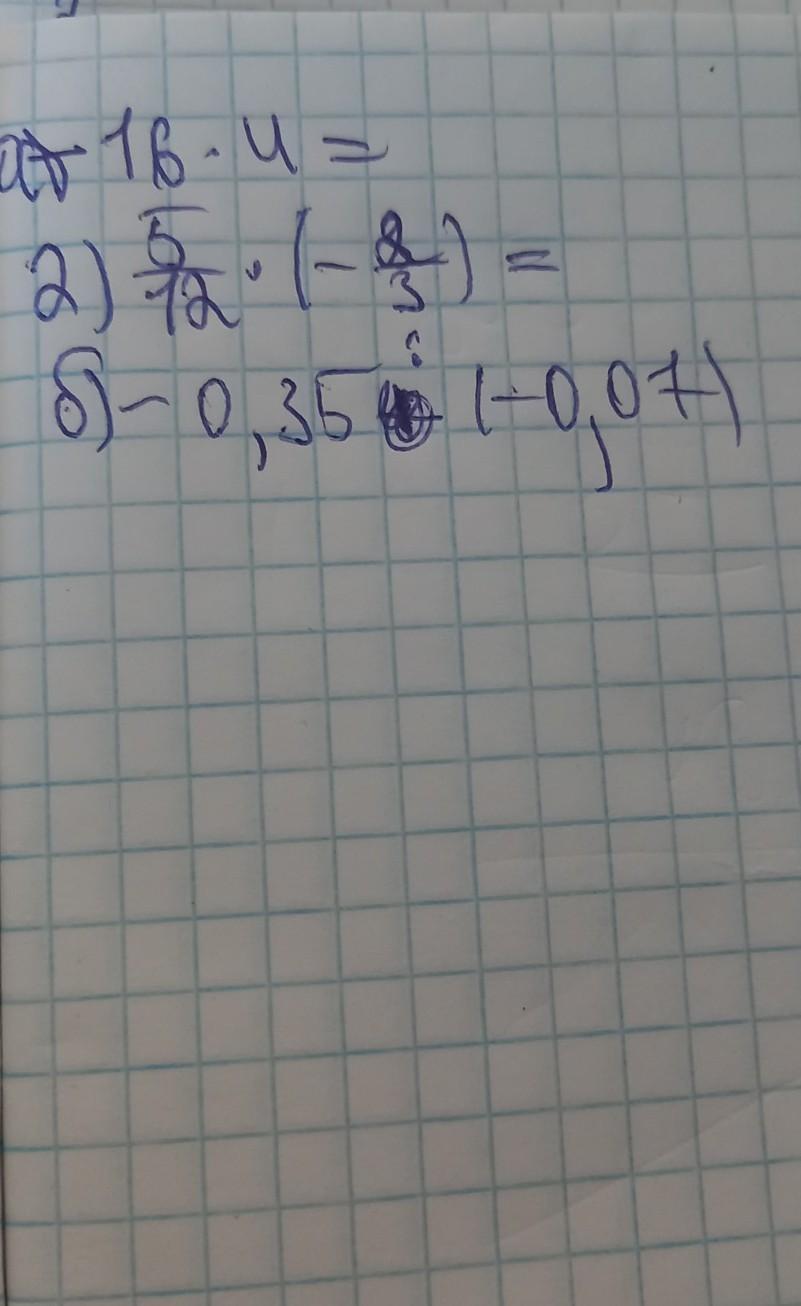 а) - 16 · 4 =
2) 5/12 · (- 2/3) =
б) - 0,35 : (-0,07)